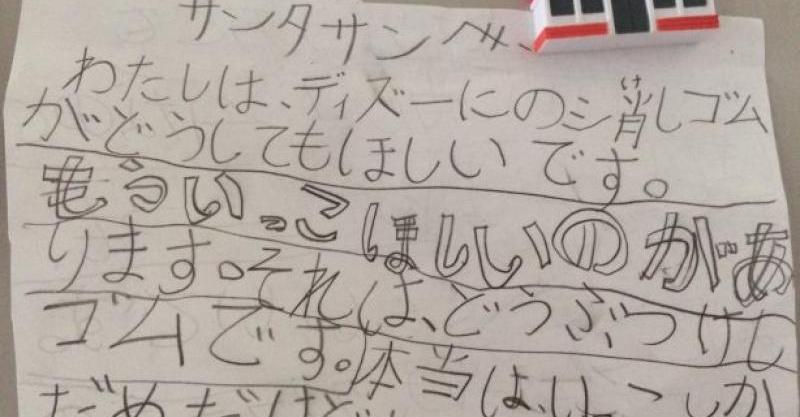 サンタサンへ
わたしは、ディズーにのシ消しゴム
け
がどうしてもほしいです。
もういっこほしいのがあ
ります。それは、どうぶつけし
ゴムです。本当は、いっこしか
だめだけど